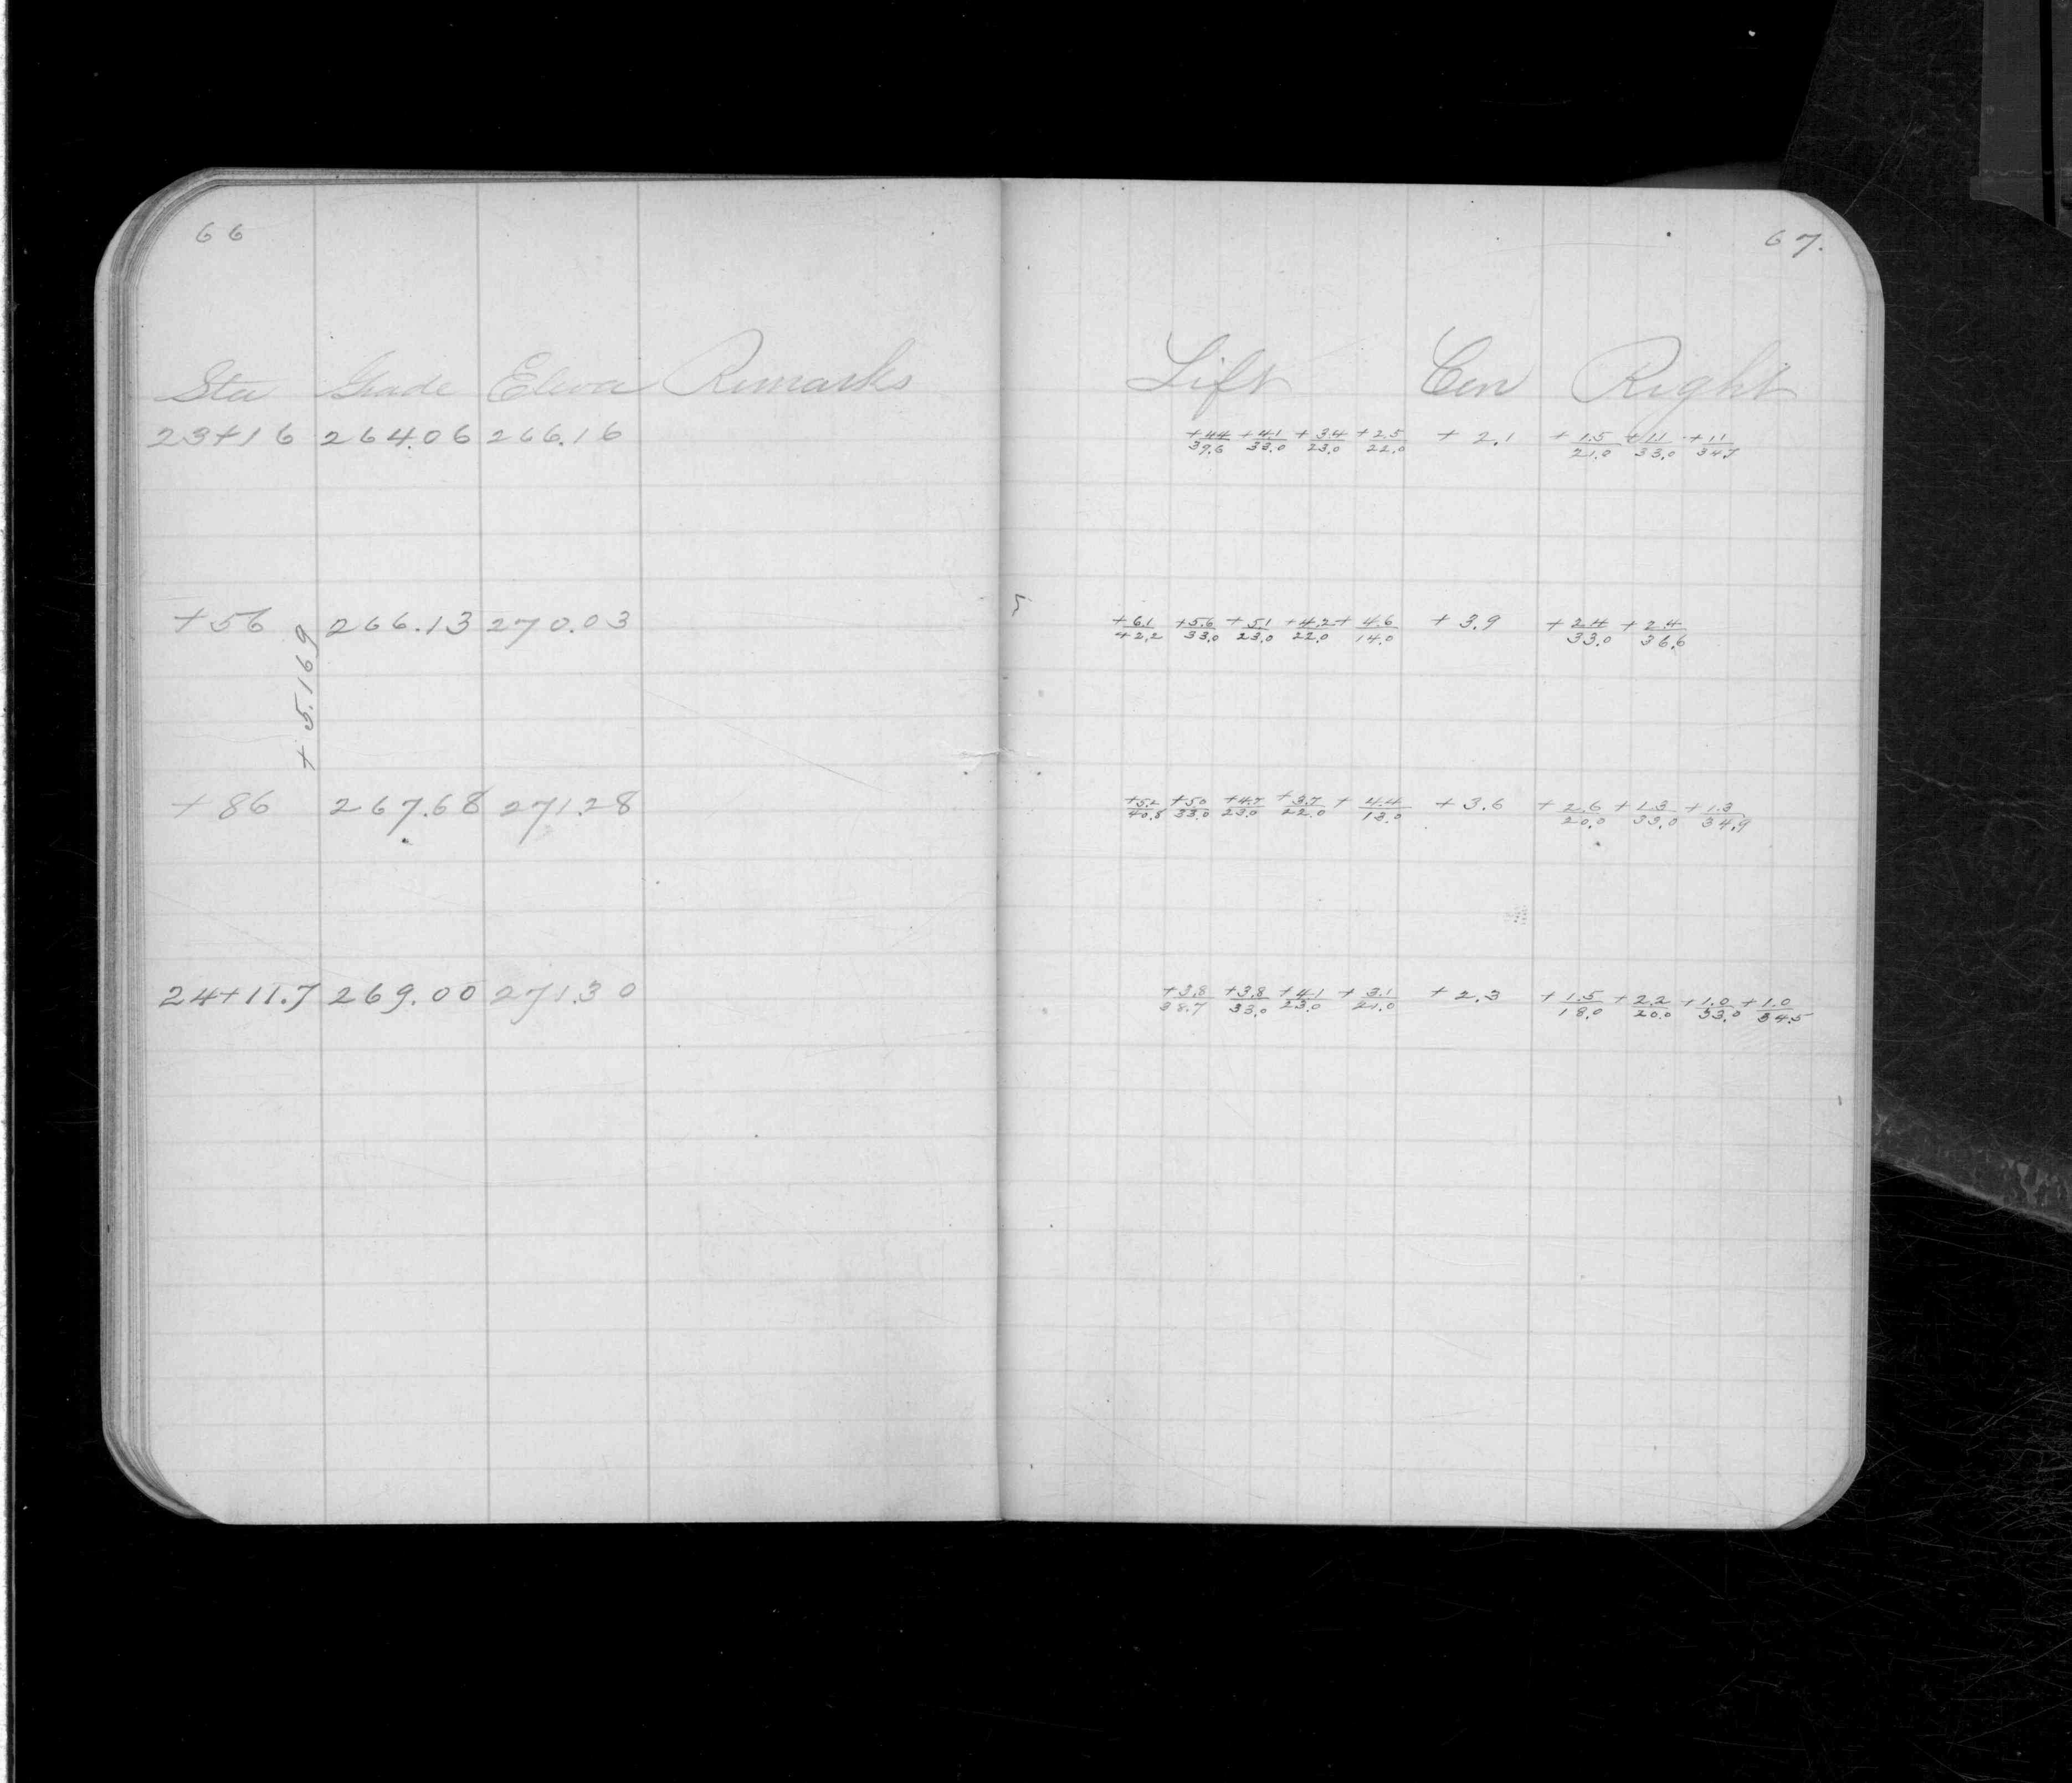 66
67.
Sta Grade Eleva Remarks
Left Cen Right
23+16 264.06 266.16
+4.4/39.6 +4.1/33.0 +3.4/23.0 +2.5/22.0 +2.1 +1.5/21.0 +1.1/33.0 +1.1/34.7
+56 266.13 270.03
+6.1/42.2 +5.6/33.0 +5.1/23.0 +4.2/22.0 +4.6/14.0 +3.9 +2.4/33.0 +2.4/36.6
+5.169
+86 267.68 271.28
+5.2/40.8 +5.0/33.0 +4.7/23.0 +3.7/22.0 +4.4/13.0 +3.6 +2.6/20.0 +1.3/33.0 +1.3/34.9
24+11.7 269.00 271.30
+3.8/38.7 +3.8/33.0 +4.1/23.0 +3.1/21.0 +2.3 +1.5/18.0 +2.2/20.0 +1.0/33.0 +1.0/34.5